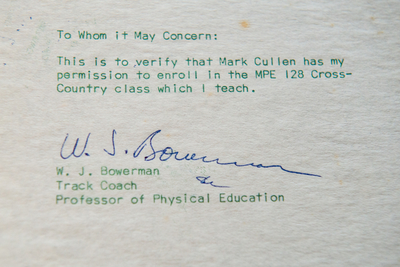 To Whom it May Concern:
This is to verify that Mark Cullen has my
permission to enroll in the MPE 128 Cross-
Country class which I teach.
W. J. Bowerman
W. J. Bowerman
Track Coach
Professor of Physical Education